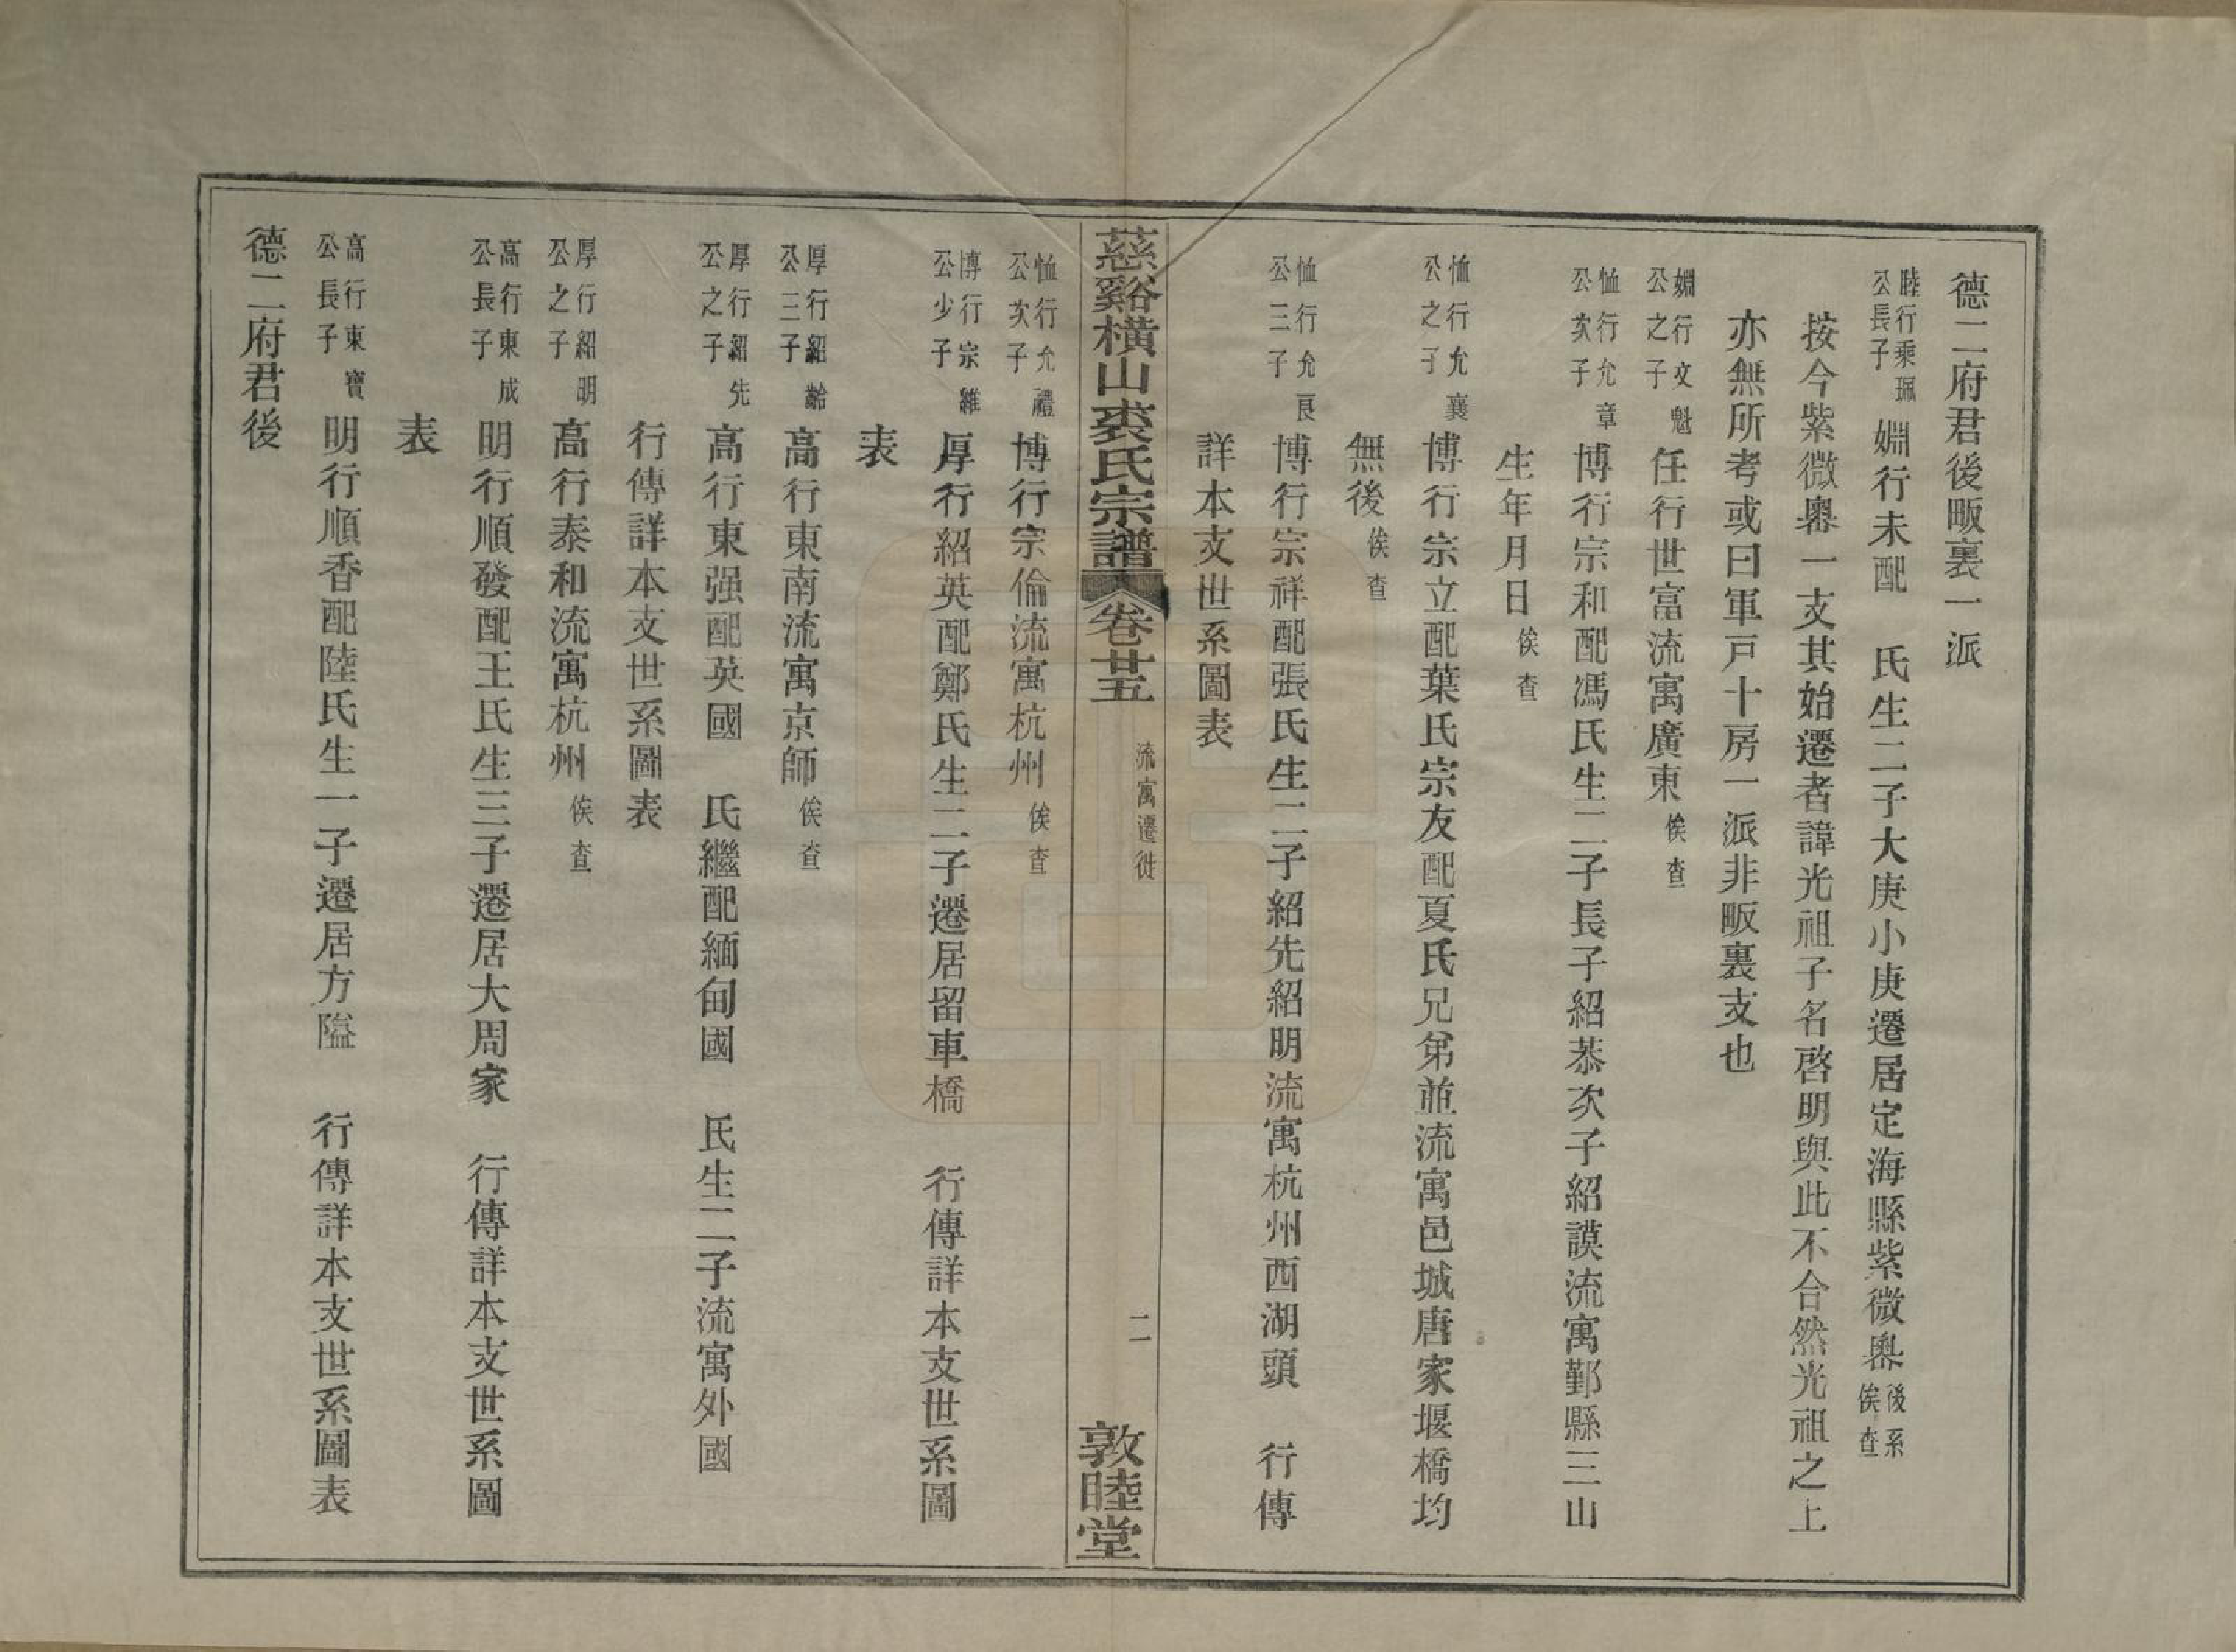 德二府君後畈裏一派
睦行秉珮公長子 婣行未配 氏生二子大庚小庚遷居定海縣紫微嶴後系俟查
按今紫微嶴一支其始遷者諱光祖子名啓明與此不合然光祖之上
亦無所考或曰軍戸十房一派非畈裏支也
婣行文魁公之子 任行世富流寓廣東俟查
恤行允章公次子 博行宗和配馮氏生二子長子紹恭次子紹謨流寓鄞縣三山
生年月日俟查
恤行允襄公之子 博行宗立配葉氏宗友配夏氏兄弟並流寓邑城唐家堰橋均
無後俟查
恤行允良公三子 博行宗祥配張氏生二子紹先紹明流寓杭州西湖頭 行傳
詳本支世系圖表
慈谿橫山裘氏宗譜 卷廿五 流寓遷徙 二 敦睦堂
恤行允禮公次子 博行宗倫流寓杭州俟查
博行宗維公少子 厚行紹英配鄭氏生二子遷居留車橋 行傳詳本支世系圖
表
厚行紹齡公三子 高行東南流寓京師俟查
厚行紹先公之子 高行東强配英國 氏繼配緬甸國 氏生二子流寓外國
行傳詳本支世系圖表
厚行紹明公之子 高行泰和流寓杭州俟查
高行東成公長子 明行順發配王氏生三子遷居大周家 行傳詳本支世系圖
表
高行東寶公長子 明行順香配陸氏生一子遷居方隘 行傳詳本支世系圖表
德二府君後